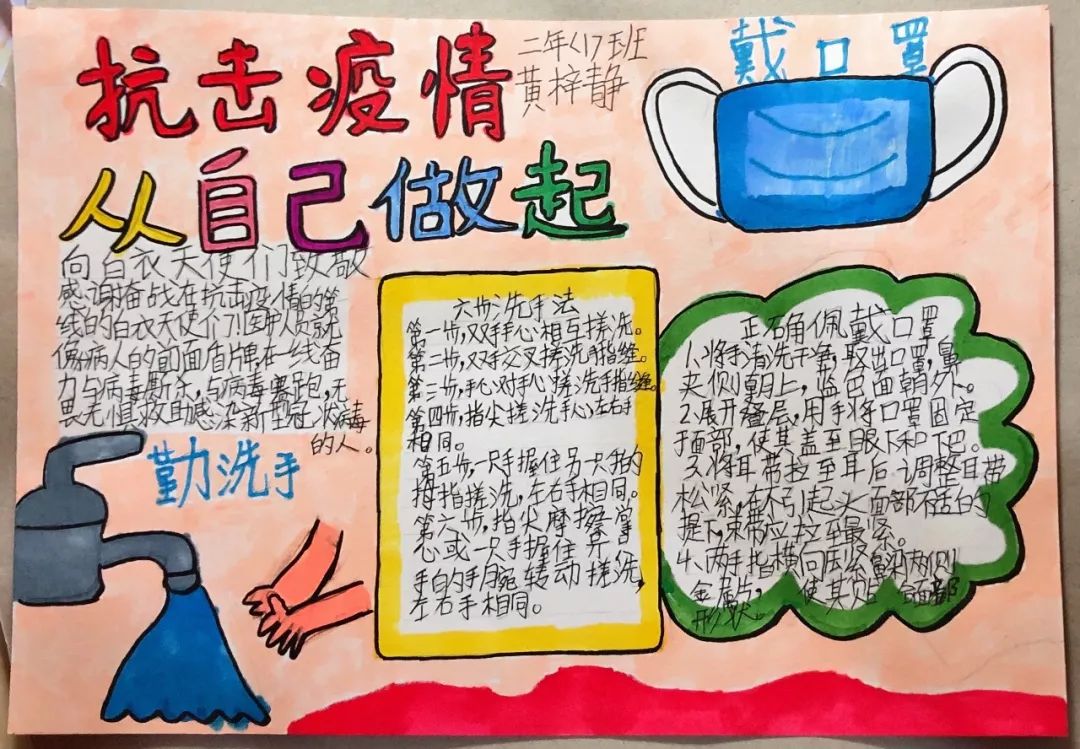 抗击疫情
二年<1>班
黄梓静
戴口罩
从自己做起
向白衣天使们致敬
感谢奋战在抗击疫情的第
线的白衣天使们!医护人员就
像病人的前面盾牌,在一线奋
力与病毒厮杀,与病毒赛跑,无
畏无惧救助感染新型冠状病毒
的人。
勤洗手
六步洗手法
第一步,双手手心相互搓洗。
第二步,双手交叉搓洗手指缝。
第三步,手心对手心搓洗手指缝。
第四步,指尖搓洗手心,左右手
相同。
第五步,一只手握住另一只手的
拇指搓洗,左右手相同。
第六步,指尖摩擦掌
心或一只手握住另一
手的手腕转动搓洗,
左右手相同。
正确佩戴口罩
1.将手清洗干净,取出口罩,鼻
夹侧朝上,蓝色面朝外。
2.展开叠层,用手将口罩固定
于面部,使其盖至眼下和下巴。
3.将耳带拉至耳后,调整耳带
松紧,在不引起火面部不适的
提下,束带应拉到最紧。
4.两手指横向压紧鼻梁两侧
金属片,使其贴 面部
形状。